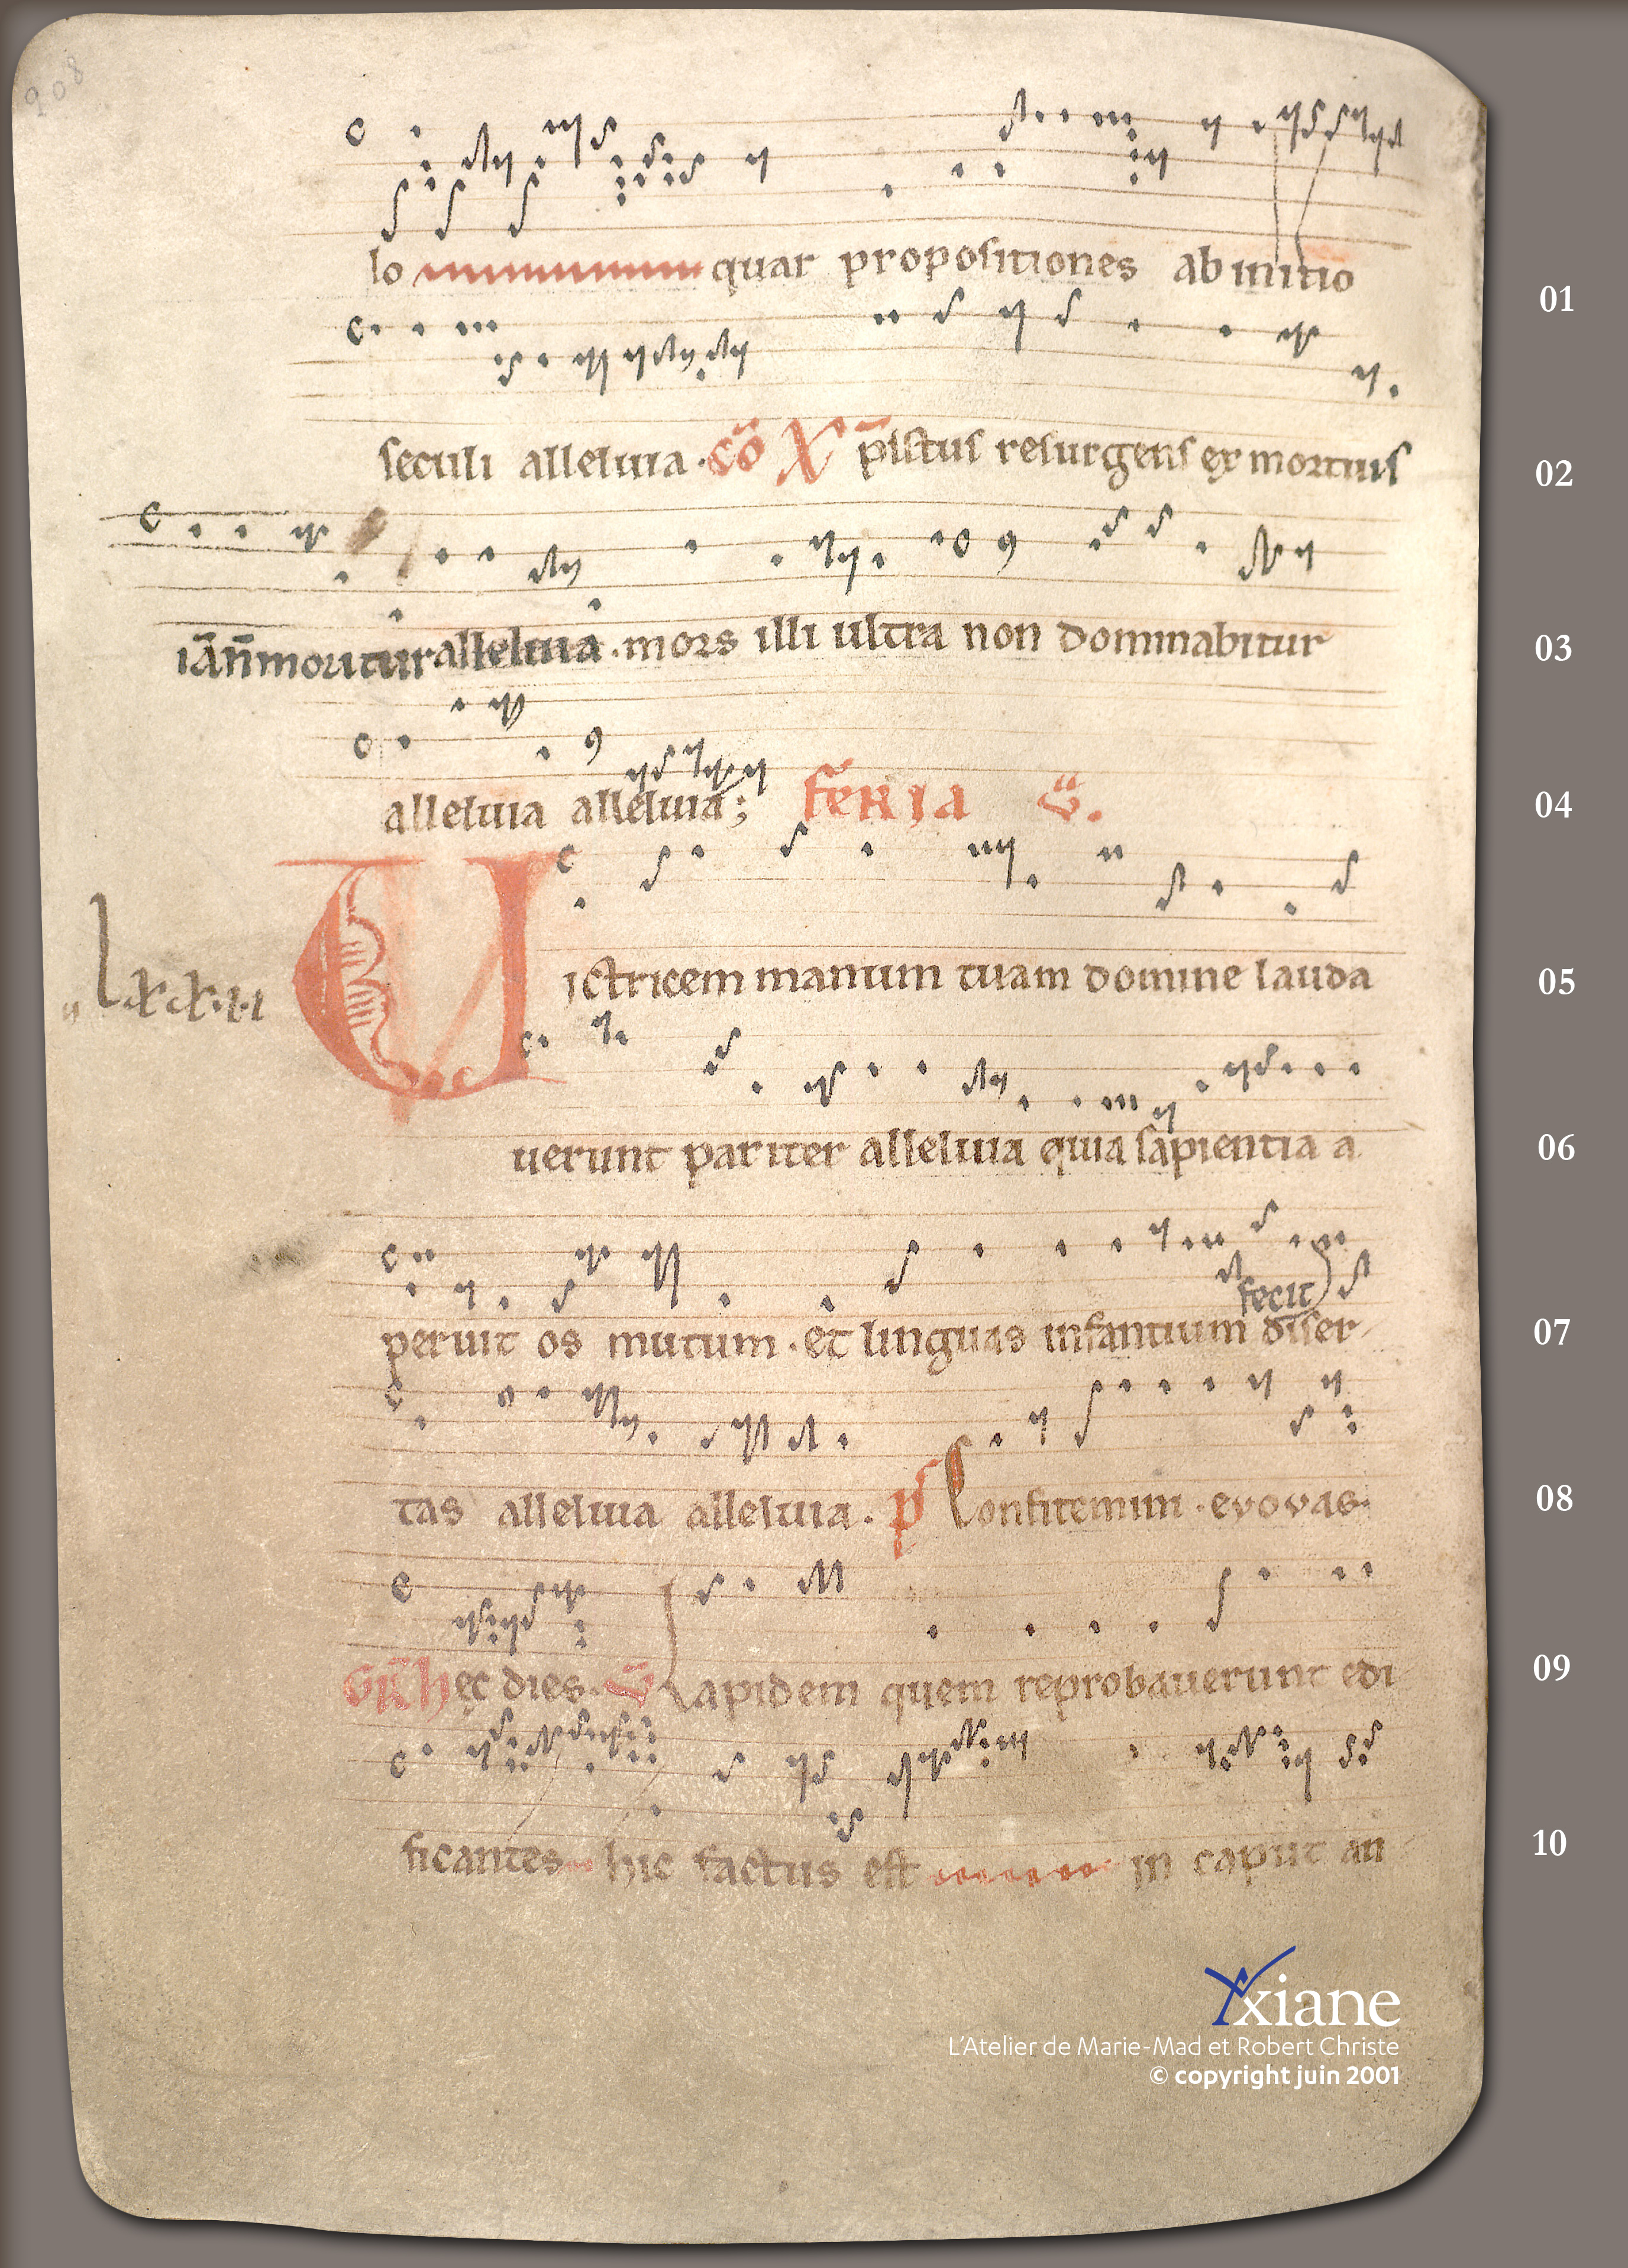 208
lo quar propositiones ab initio
01
seculi alleluia. cō Xp̄istus resurgens ex mortuis
02
iā n̄ moritur alleluia. mors illi ultra non dominabitur
03
alleluia alleluia; FERIA V.
04
lxxvi Victricem manum tuam domine lauda
05
uerunt pariter alleluia quia sapientia a
06
peruit os mutum. et linguas infantium fecit diser
07
tas alleluia alleluia. ps Confitemini. evovas.
08
GR̄ hęc dies. V̄ Lapidem quem reprobauerunt edi
09
ficantes hic factus est in caput an
10
Yxiane
L'Atelier de Marie-Mad et Robert Christe
© copyright juin 2001